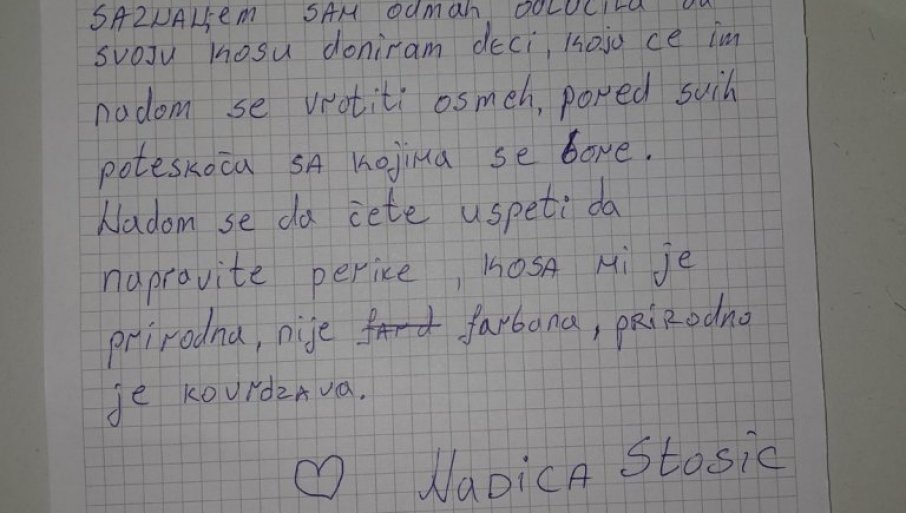 SAZNANjem SAM odmah odlučila da
svoju kosu doniram deci, koja ce im
nadom se vrotiti osmeh, pored svih
poteskoča SA kojima se bore.
Nadom se da čete uspeti da
napravite perike, kosa mi je
prirodna, nije fard farbana, prirodno
je kovrdzava.
♡ Nadica Stosic